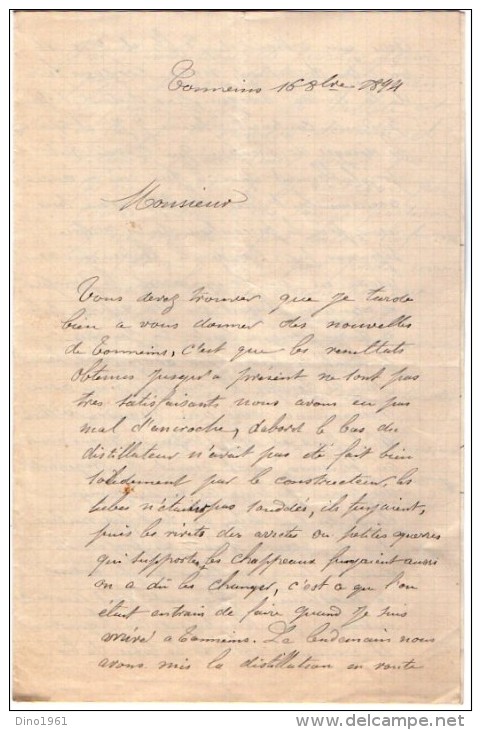 Tonneins 16 8bre 1894
Monsieur
Vous devez trouver que je tarde
bien a vous donner des nouvelles
de Tonneins, c'est que les resultats
obtenus jusqu'a présent ne sont pas
tres satisfaisants nous avons eu pas
mal d'anicroche, d'abord le bas du
distillateur n'avait pas été fait bien
solidement par le constructeur, les
tubes n'étaient pas soudés, ils fuyaient,
puis les rivets des
qui supporte les chappeaux fuyaient aussi
on a dû les changer, c'est a que l'on
était entrain de faire quand je suis
arrivé a Tonneins. Le lendemain nous
avons mis la distillation en route
Dino1961